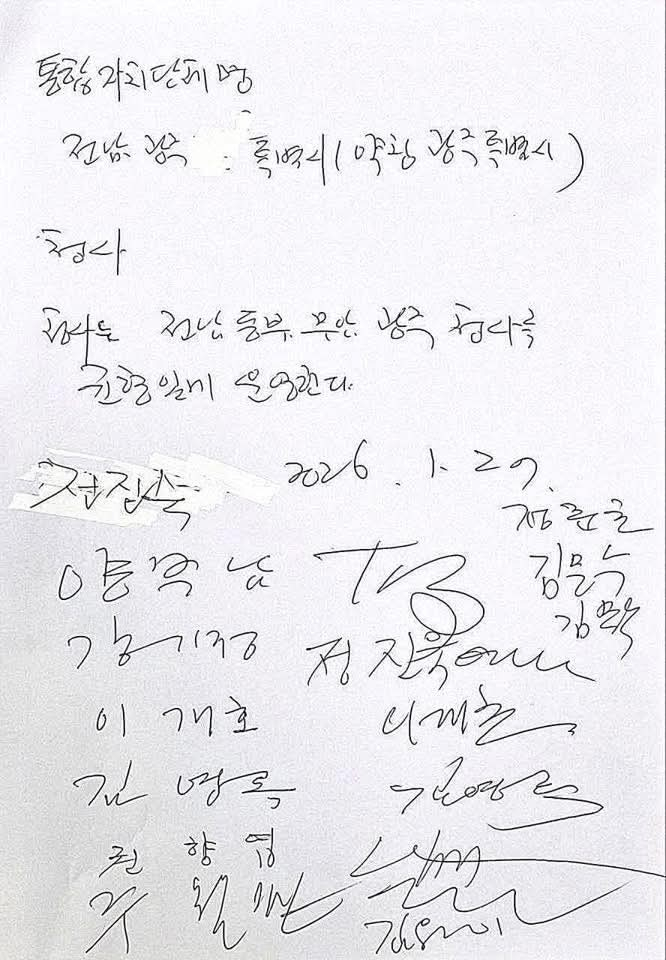 통합 자치단체 명
전남 광주 특별시 (약칭 광주특별시)
청사
청사는 전남 동부, 무안, 광주 청사를
균형있게 운영한다.
2026. 1. 27.
정준호
양부남
김문수
김문수
강기정 정진욱
이개호 이개호
김영록 김영록
권향엽
주철현